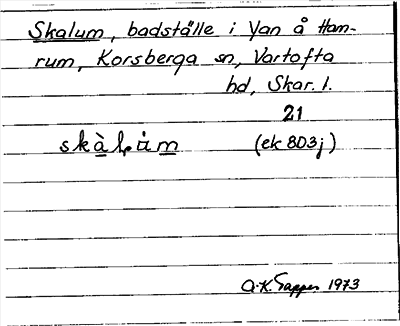 Skalum, badställe i Yan å Ham-
rum, Korsberga sn, Vartofta
hd, Skar. l.
21
(ek 8D3j)
A.K. Tapper 1973